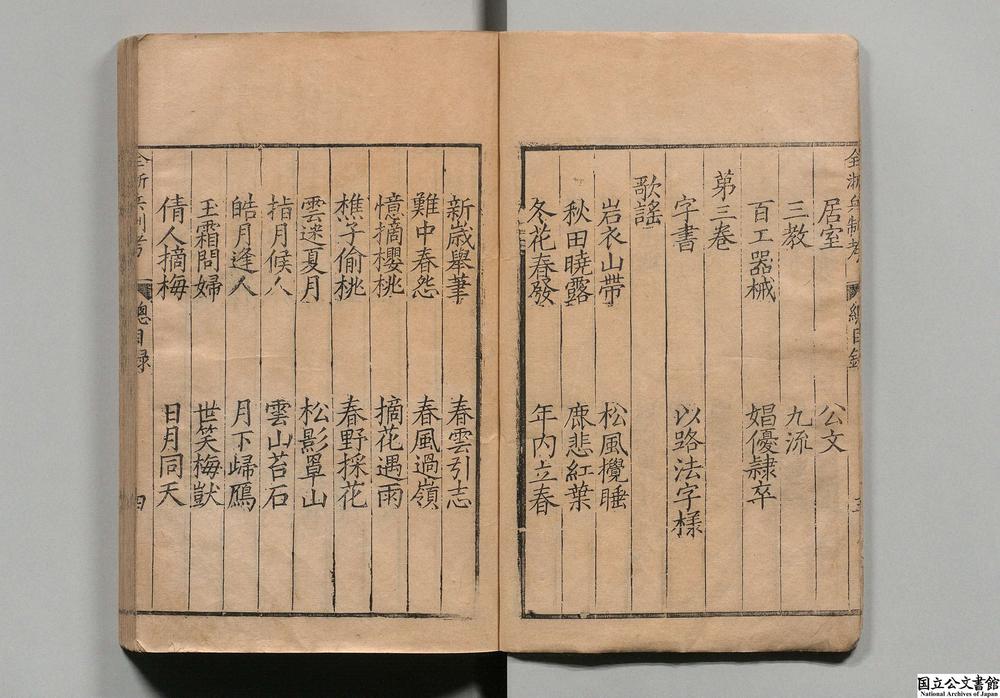 全浙兵制考 總目錄
居室 公文
三教 九流
百工器械 娼優隸卒
第三卷
字書 以路法字樣
歌謠
岩衣山帶 松風攪睡
秋田曉露 鹿悲紅葉
冬花春發 年內立春
新歲舉筆 春雲引志
難中春怨 春風過嶺
憶摘櫻桃 摘花遇雨
樵子偷桃 春野採花
雲迷夏月 松影罩山
指月候人 雲山苔石
皓月逢人 月下歸鴈
玉霜問婦 世笑梅獃
倩人摘梅 日月同天
全浙兵制考 總目錄 四
国立公文書館
National Archives of Japan